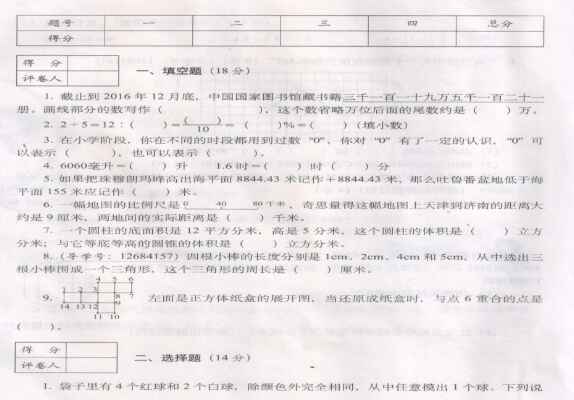 题号 一 二 三 四 总分
得分
得 分
评卷人
一、填空题（18分）
1. 截止到2016年12月底，中国国家图书馆藏书籍三千一百一十九万五千一百二十一
册。画线部分的数写作（ ），这个数省略万位后面的尾数约是（ ）万。
2. 2÷5=12：（ ）=( )/10=（ ）%=（ ）（填小数）
3. 在小学阶段，你在不同的时段都用到过数“0”，你对“0”有了一定的认识，“0”可
以表示（ ），也可以表示（ ）。
4. 6060毫升=（ ）升 1.6时=（ ）时（ ）分
5. 如果把珠穆朗玛峰高出海平面8844.43米记作+8844.43米，那么吐鲁番盆地低于海
平面155米应记作（ ）米。
6. 一幅地图的比例尺是 0 40 80千米，奇思量得这幅地图上天津到济南的距离大
约是9厘米，两地间的实际距离是（ ）千米。
7. 一个圆柱的底面积是12平方分米，高是5分米，这个圆柱的体积是（ ）立方
分米；与它等底等高的圆锥的体积是（ ）立方分米。
8.（导学号：12684157）四根小棒的长度分别是1cm、2cm、4cm和5cm，从中选出三
根小棒围成一个三角形，这个三角形的周长是（ ）厘米。
4 5 6
1 2 3 7
9. 8 左面是正方体纸盒的展开图，当还原成纸盒时，与点6重合的点是
9
14 13 12
11 10
（ ）。
得 分
评卷人
二、选择题（14分）
1. 袋子里有4个红球和2个白球，除颜色外完全相同，从中任意摸出1个球。下列说